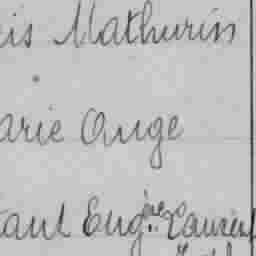 is Mathurin
arie Ange
aul Eugène Laurent